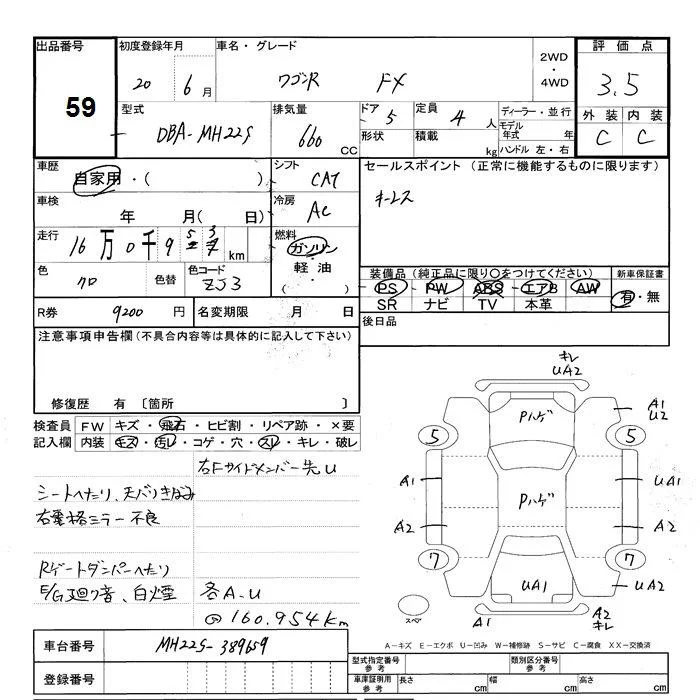 出品番号 初度登録年月 車名・グレード 2WD・4WD 評価点
59 20 6月 ワゴンR FX 3.5
型式 排気量 ドア 5 定員 4人 ディーラー・並行 外装 内装
DBA-MH22S 660 CC 形状 積載 kg モデル年式 年 C C
ハンドル 左・右
車歴 シフト セールスポイント (正常に機能するものに限ります)
自家用・( ) CAT キーレス
車検 年 月(日) 冷房 AC
走行 16万0千9 5 3 km 燃料 ガソリン・軽油・( )
色 クロ 色替 色コード ZJ3
装備品 (純正品に限り○をつけてください) 新車保証書
PS PW ABS エアB AW 有・無
SR ナビ TV 本革
R券 9200円 名変期限 月 日 後日品
注意事項申告欄(不具合内容等は具体的に記入して下さい)
修復歴 有 〔箇所 〕
検査員 FW キズ・飛石・ヒビ割・リペア跡・×要
記入欄 内装 キズ・汚レ・コゲ・穴・スレ・キレ・破レ
右Fサイドメンバー先U
シートへたり、天バリきばみ
右電格ミラー不良
Rゲートダンパーへたり
E/G廻り音、白煙 各A・U
@160.954km
キレ
UA2
Pハゲ A1
U2
5 5
A1 Pハゲ UA1
A2 A2
7 7
UA1 UA2
スペア A1 A2
キレ
A-キズ E-エクボ U-凹み W-補修跡 S-サビ C-腐食 XX-交換済
車台番号 MH22S-389659
登録番号
型式指定番号 参考 類別区分番号 参考
車庫証明用 参考 長さ cm 幅 cm 高さ cm